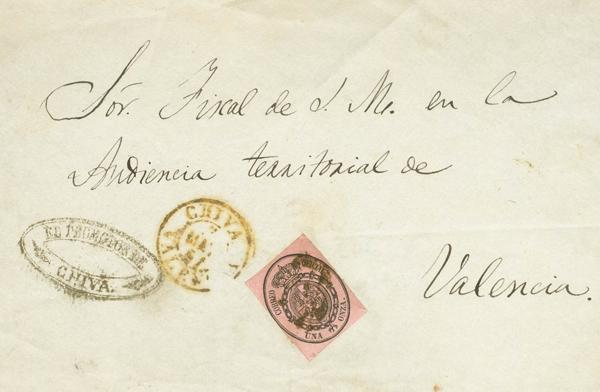 Sór. Fiscal de S. M. en la
Audiencia territorial de
Valencia.
CHIVA
CHIVA.
CORREO OFICIAL
UNA ONZA.